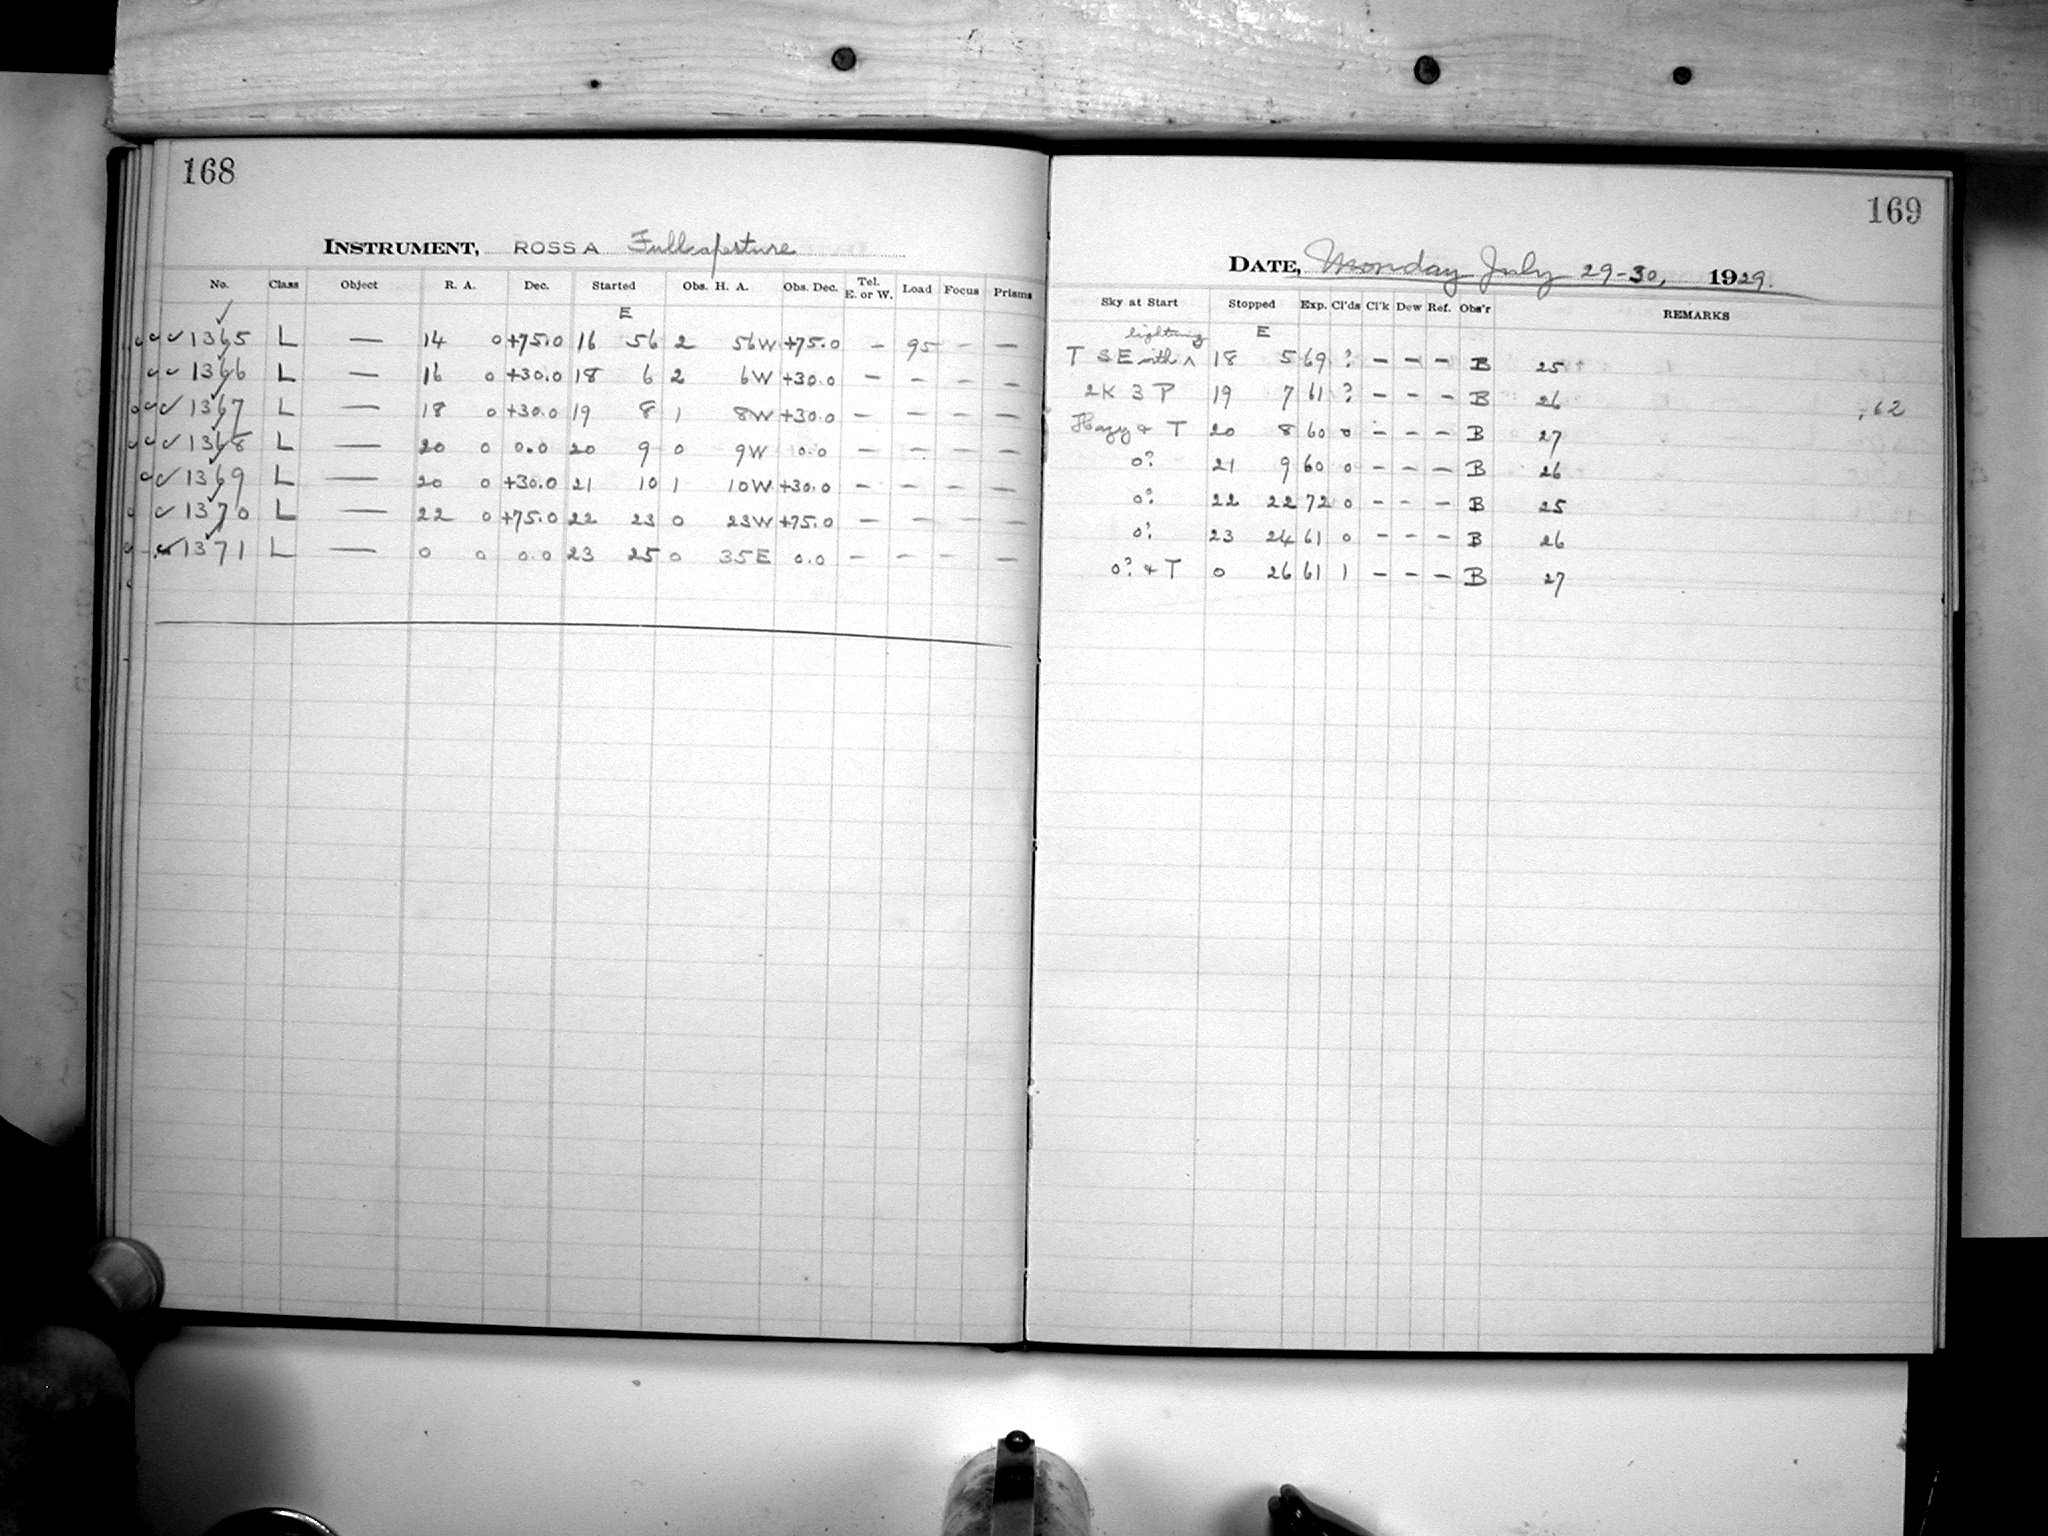 168
INSTRUMENT, ROSS A Full aperture
No. Class Object R. A. Dec. Started Obs. H. A. Obs. Dec. Tel. E. or W. Load Focus Prisms
E
1365 L — 14 0 +75.0 16 56 2 56W +75.0 — 95 — —
1366 L — 16 0 +30.0 18 6 2 6W +30.0 — — — —
1367 L — 18 0 +30.0 19 8 1 8W +30.0 — — — —
1368 L — 20 0 0.0 20 9 0 9W 0.0 — — — —
1369 L — 20 0 +30.0 21 10 1 10W +30.0 — — — —
1370 L — 22 0 +75.0 22 23 0 23W +75.0 — — — —
1371 L — 0 0 0.0 23 25 0 35E 0.0 — — — —
169
DATE, Monday July 29-30, 1929.
Sky at Start Stopped Exp. Cl'ds Cl'k Dew Ref. Obs'r REMARKS
lightning E
T SE with ^ 18 5 69 ? — — — B 25
2K 3 P 19 7 61 ? — — — B 26 .62
Hazy & T 20 8 60 0 — — — B 27
0? 21 9 60 0 — — — B 26
0? 22 22 72 0 — — — B 25
0? 23 24 61 0 — — — B 26
0? & T 0 26 61 1 — — — B 27